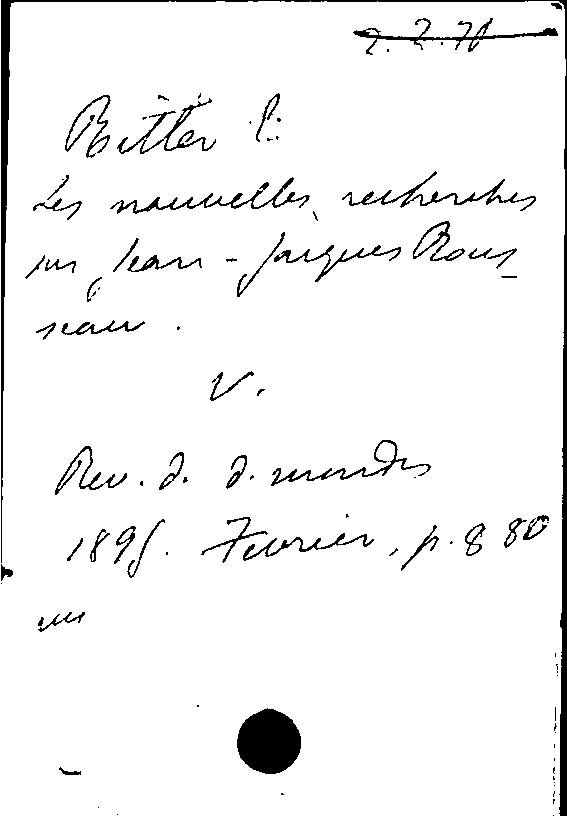 2. 2. 71
Ritter E:
Les nouvelles recherches
sur Jean-Jacques Rous-
seau.
V.
Rev. d. d. mondes
1895. Fevrier, p. 880